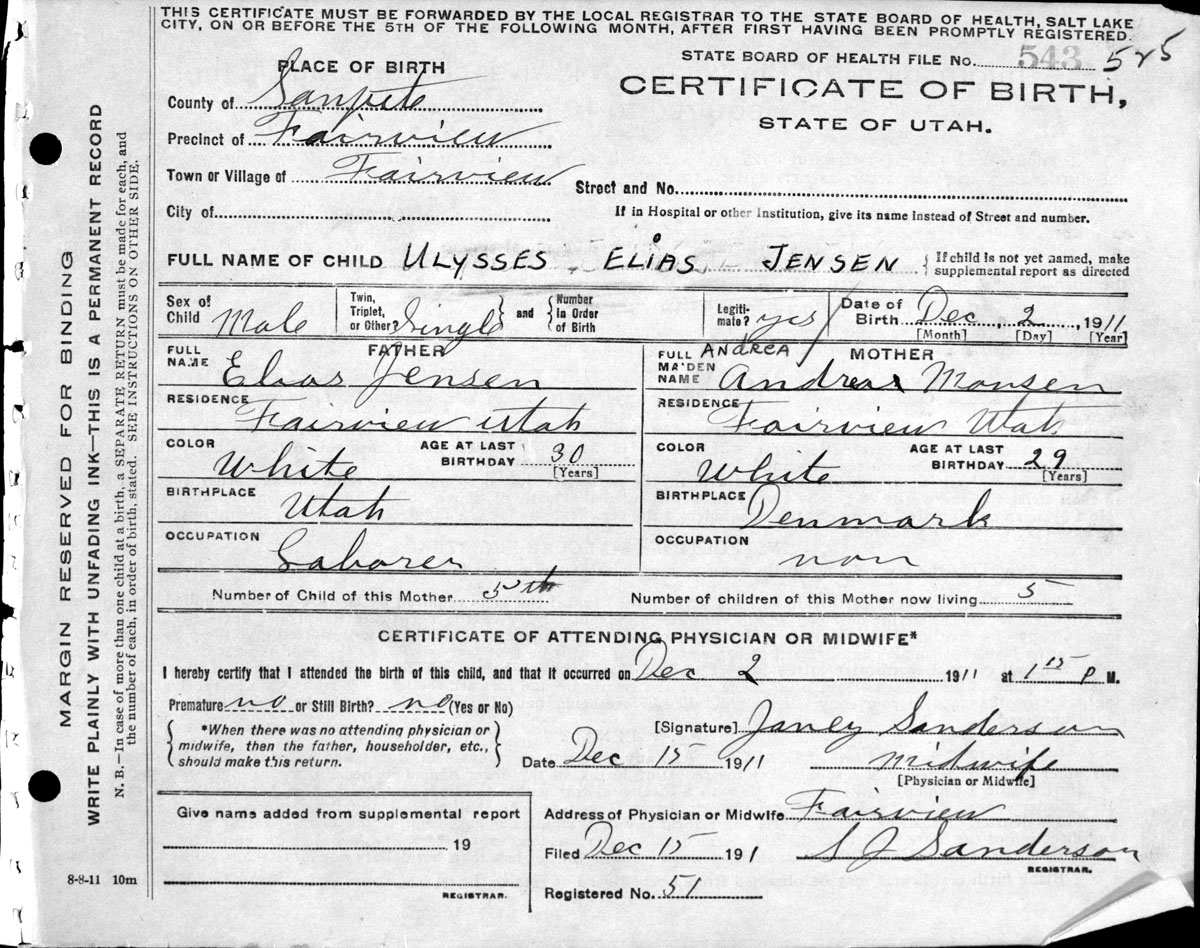 THIS CERTIFICATE MUST BE FORWARDED BY THE LOCAL REGISTRAR TO THE STATE BOARD OF HEALTH, SALT LAKE
CITY, ON OR BEFORE THE 5TH OF THE FOLLOWING MONTH, AFTER FIRST HAVING BEEN PROMPTLY REGISTERED.
STATE BOARD OF HEALTH FILE No. 543 525
PLACE OF BIRTH
CERTIFICATE OF BIRTH,
STATE OF UTAH.
County of Sanpete
Precinct of Fairview
Town or Village of Fairview
Street and No.
City of
If in Hospital or other Institution, give its name instead of Street and number.
FULL NAME OF CHILD ULYSSES ELIAS JENSEN { If child is not yet named, make
supplemental report as directed
Sex of Child Male
Twin, Triplet, or Other? Single } and { Number in Order of Birth
Legiti-mate? yes
Date of Birth Dec 2, 1911
[Month] [Day] [Year]
FATHER
FULL NAME Elias Jensen
RESIDENCE Fairview Utah
COLOR White AGE AT LAST BIRTHDAY 30
[Years]
BIRTHPLACE Utah
OCCUPATION Laborer
MOTHER
ANDREA
FULL MAIDEN NAME Andrea Monsen
RESIDENCE Fairview Utah
COLOR White AGE AT LAST BIRTHDAY 29
[Years]
BIRTHPLACE Denmark
OCCUPATION non
Number of Child of this Mother 5th Number of children of this Mother now living 5
CERTIFICATE OF ATTENDING PHYSICIAN OR MIDWIFE*
I hereby certify that I attended the birth of this child, and that it occurred on Dec 2 1911 at 1 15 P M.
Premature no or Still Birth? no (Yes or No)
{ *When there was no attending physician or
midwife, then the father, householder, etc.,
should make this return. }
[Signature] Janey Sanderson
Date Dec 15 1911 midwife
[Physician or Midwife]
Address of Physician or Midwife Fairview
Filed Dec 15 1911 S J Sanderson
REGISTRAR.
Registered No. 51
Give name added from supplemental report
19
REGISTRAR.
8-8-11 10m
MARGIN RESERVED FOR BINDING
WRITE PLAINLY WITH UNFADING INK—THIS IS A PERMANENT RECORD
N. B.—In case of more than one child at a birth, a SEPARATE RETURN must be made for each, and
the number of each, in order of birth, stated. SEE INSTRUCTIONS ON OTHER SIDE.